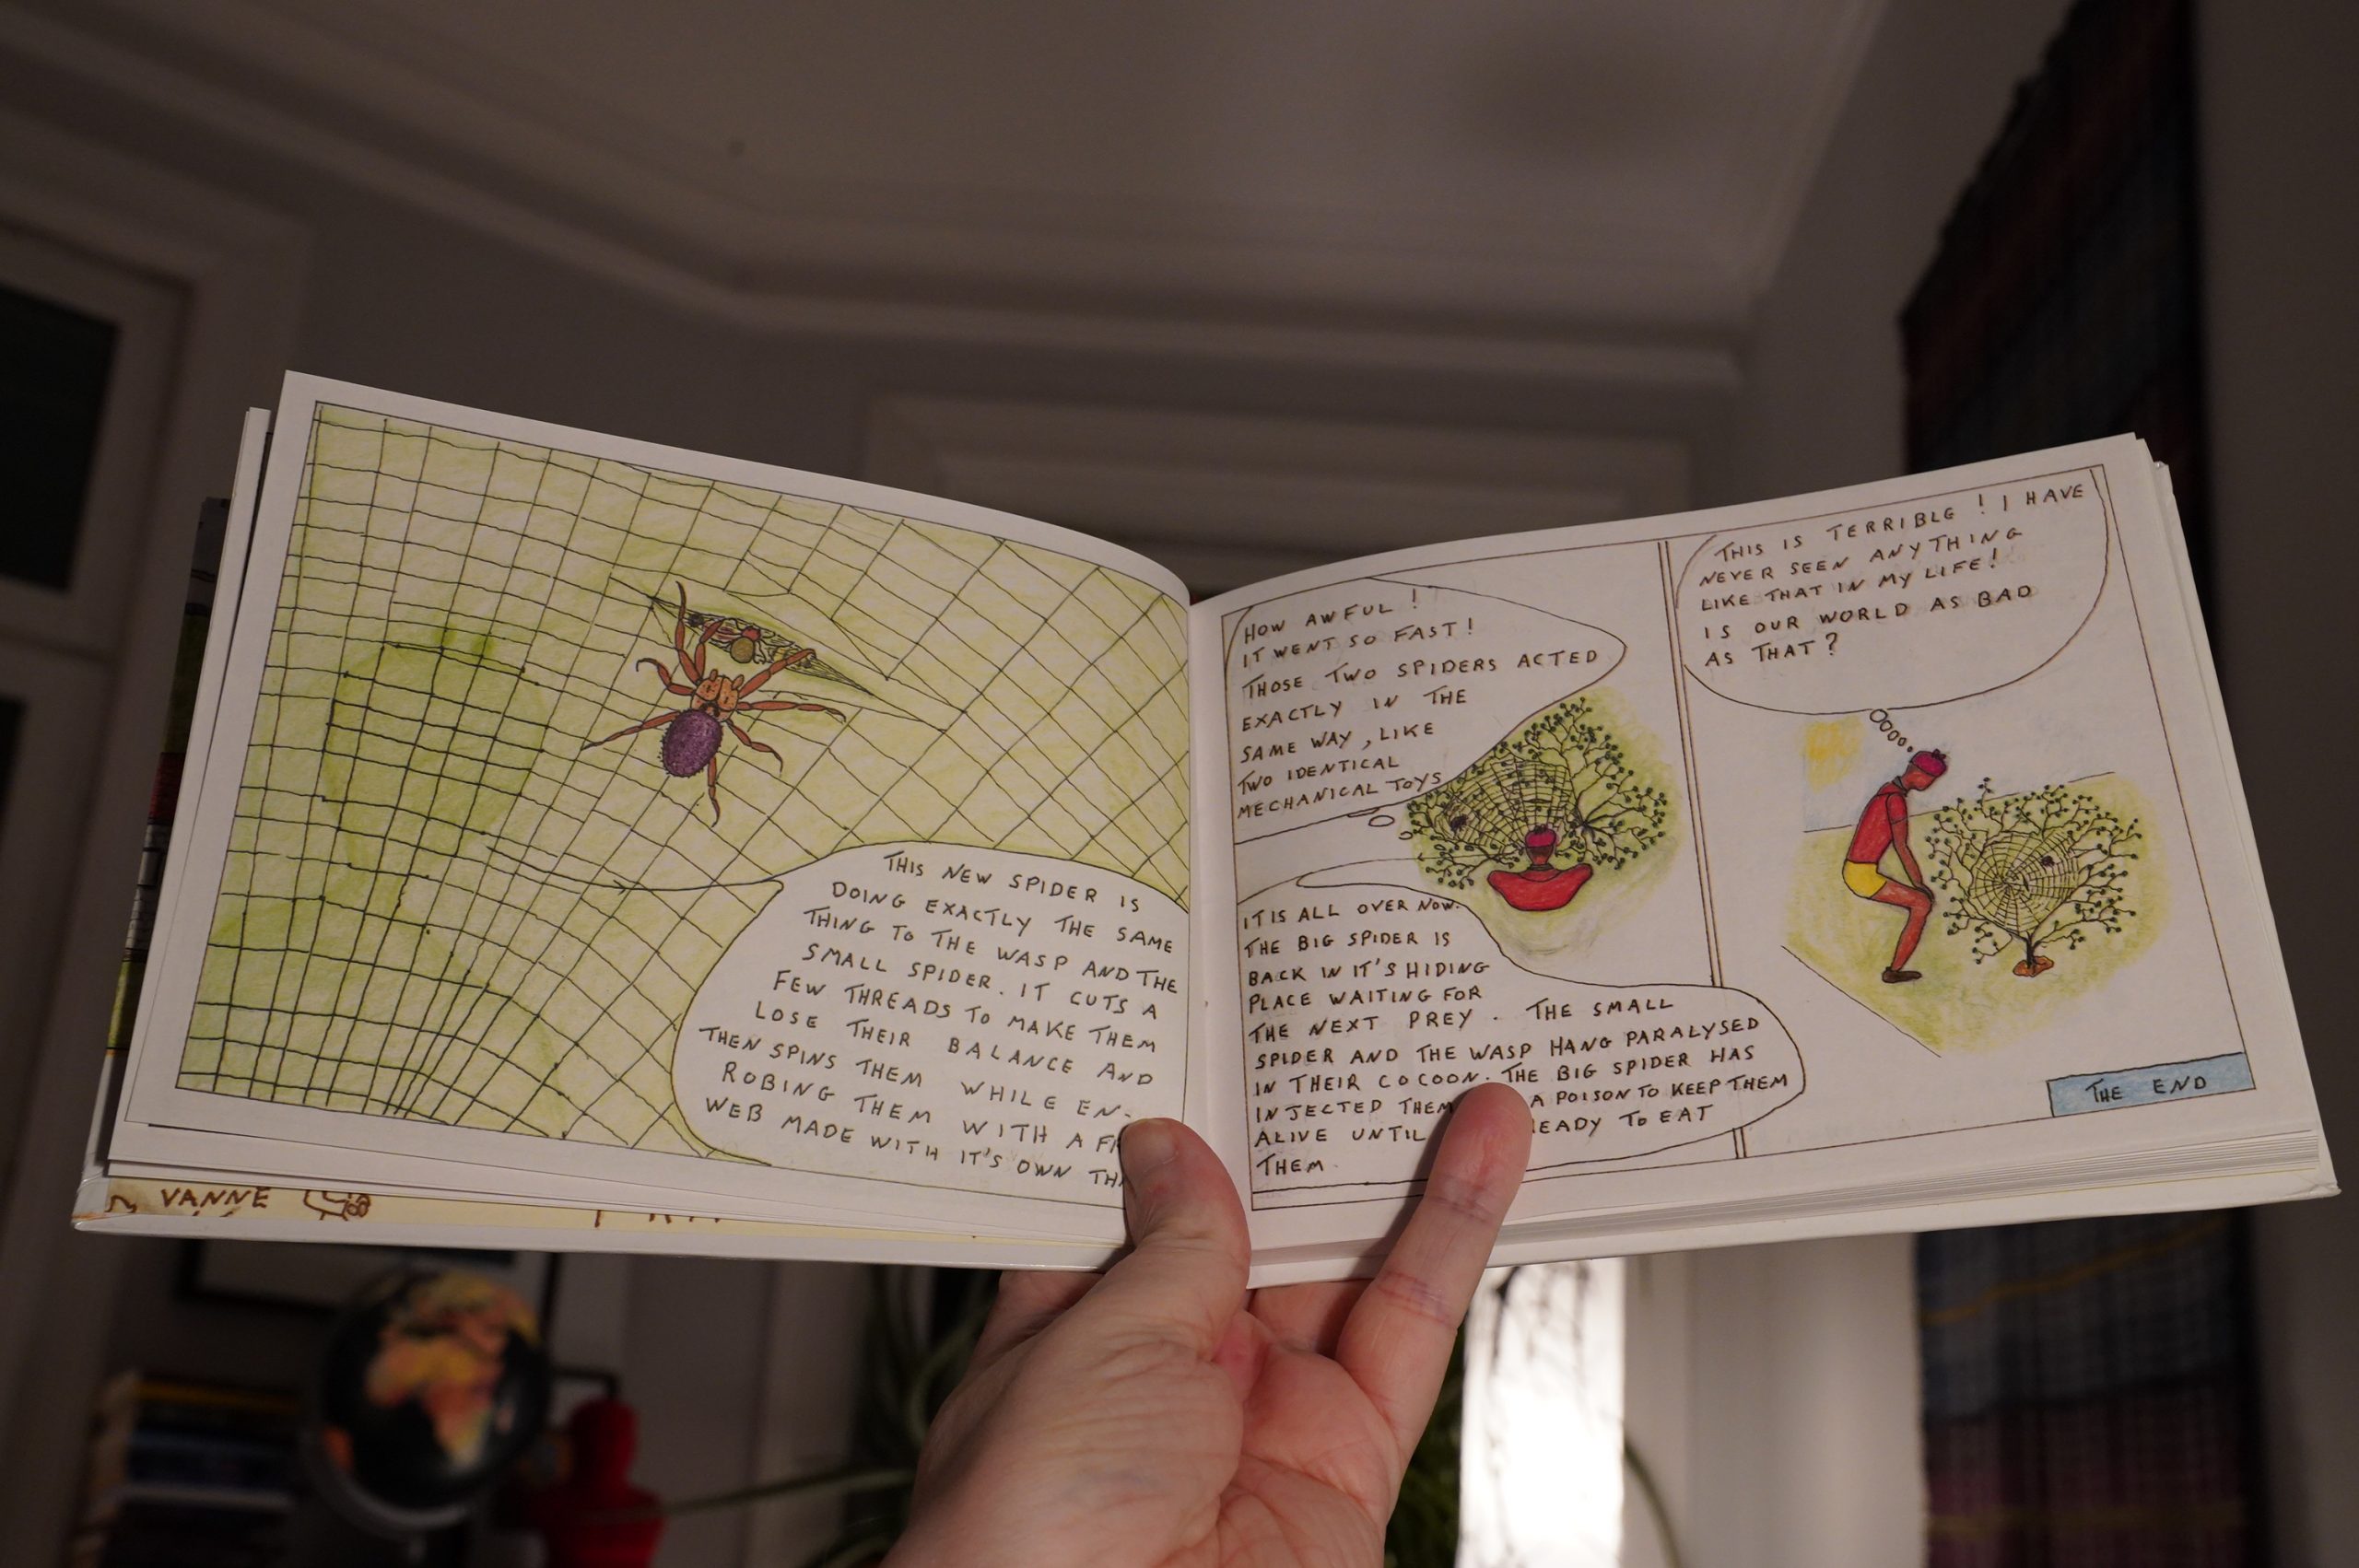 THIS NEW SPIDER IS
DOING EXACTLY THE SAME
THING TO THE WASP AND THE
SMALL SPIDER. IT CUTS A
FEW THREADS TO MAKE THEM
LOSE THEIR BALANCE AND
THEN SPINS THEM WHILE EN-
ROBING THEM WITH A
WEB MADE WITH IT'S OWN
HOW AWFUL !
IT WENT SO FAST!
THOSE TWO SPIDERS ACTED
EXACTLY IN THE
SAME WAY, LIKE
TWO IDENTICAL
MECHANICAL TOYS
IT IS ALL OVER NOW.
THE BIG SPIDER IS
BACK IN IT'S HIDING
PLACE WAITING FOR
THE NEXT PREY. THE SMALL
SPIDER AND THE WASP HANG PARALYSED
IN THEIR COCOON. THE BIG SPIDER HAS
INJECTED THEM A POISON TO KEEP THEM
ALIVE UNTIL EADY TO EAT
THEM.
THIS IS TERRIBLE! I HAVE
NEVER SEEN ANYTHING
LIKE THAT IN MY LIFE!
IS OUR WORLD AS BAD
AS THAT?
THE END
VANNE